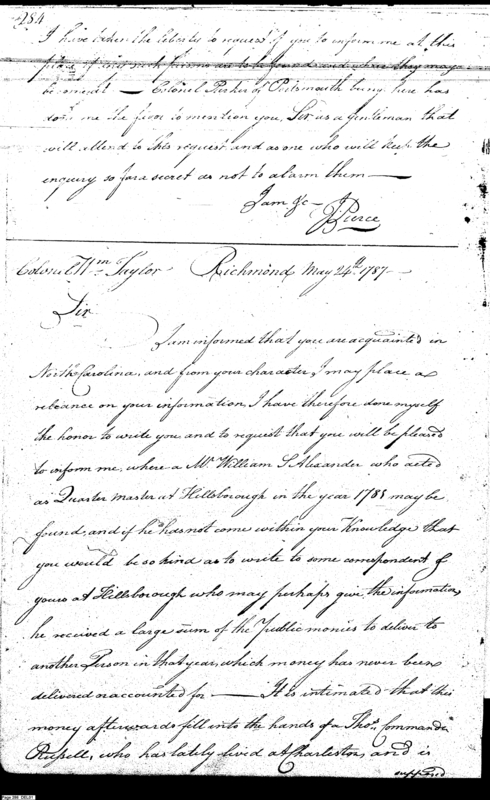 284
I have taken the liberty to request of you to inform me at this
place if any such persons are to be found and where they may
be caught — Colonel Parker of Portsmouth being here has
done me the favor to mention you, Sir as a gentleman that
will attend to this request and as one who will keep the
inquiry so far a secret as not to alarm them —
I am &c — J Pierce
Colonel Wm Taylor Richmond May 24th 1787 —
Sir
I am informed that you are acquainted in
North Carolina, and from your character, I may place a
releance on your information, I have therefore done myself
the honor to write you and to request that you will be pleased
to inform me, where a Mr. William S Alexander who acted
as Quarter master at Hillsborough in the year 1781 may be
found, and if he has not come within your Knowledge that
you would be so kind as to write to some correspondent of
yours at Hillsborough who may perhaps give the information
he received a large sum of the Public monies to deliver to
another Person in that year, which money has never been
delivered or accounted for — It is intimated that this
money afterwards fell into the hands of a Thos. Commander
Russell, who has lately lived at Charleston, and is
supposed